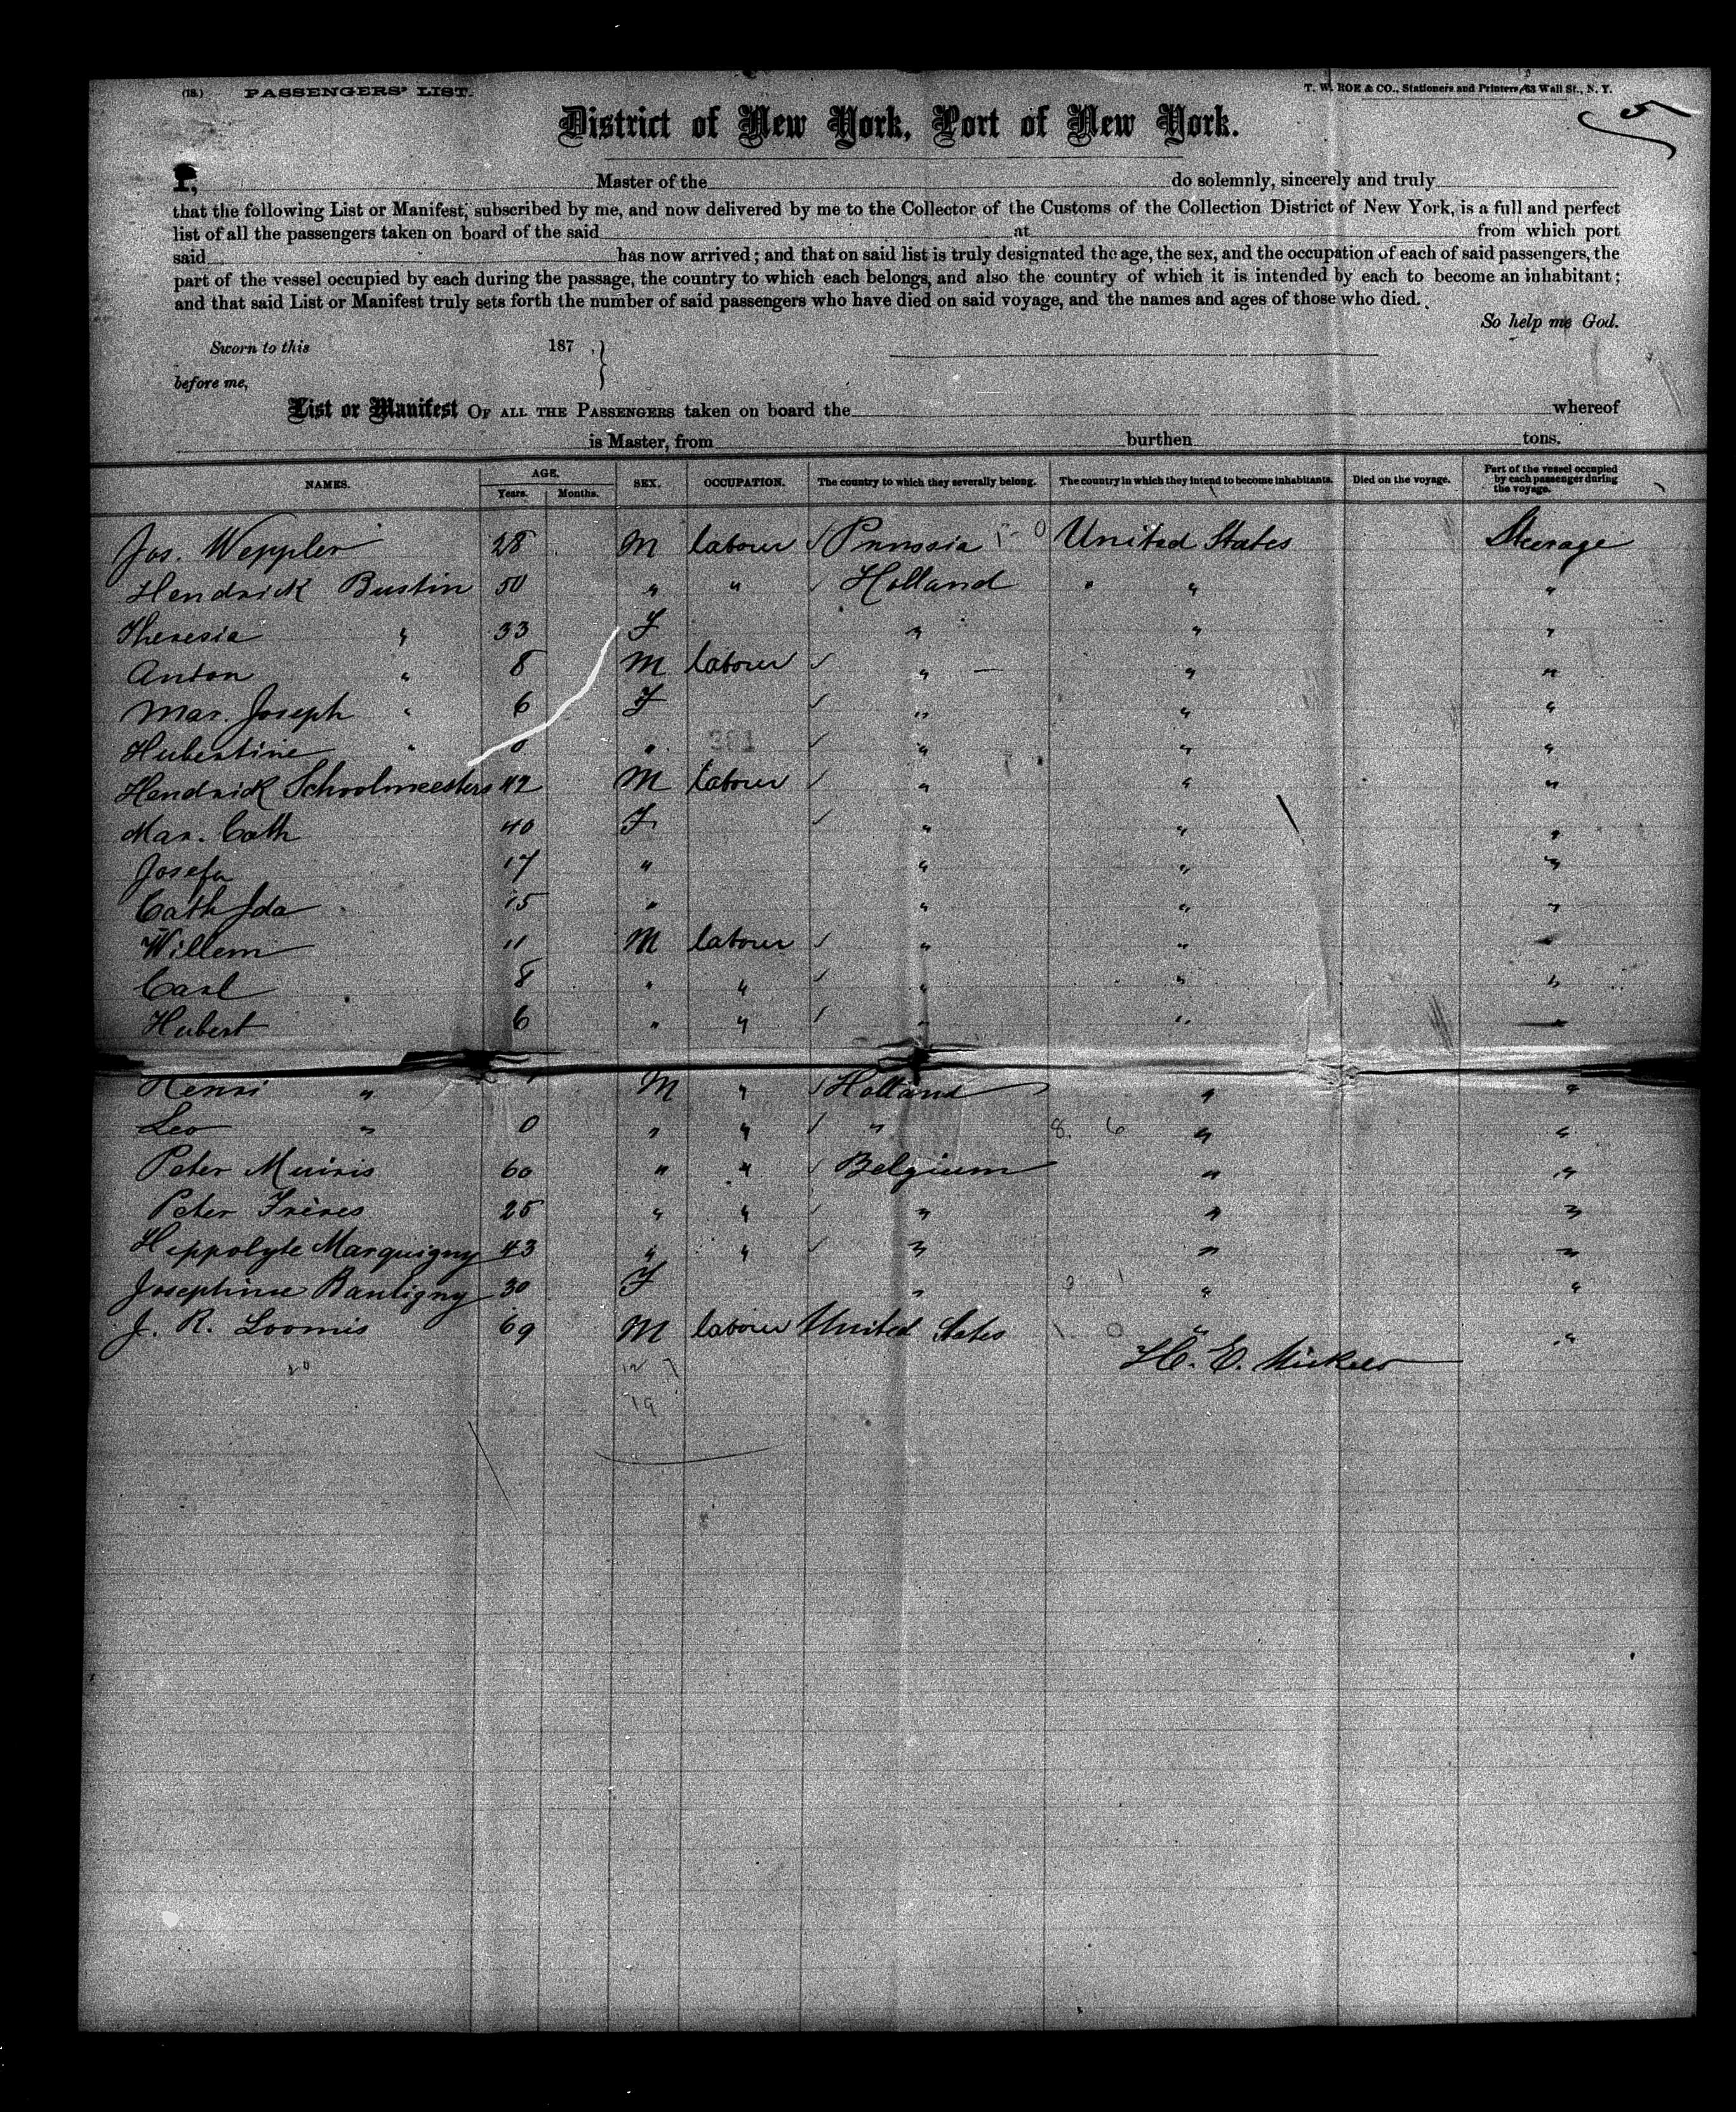 (18.) PASSENGERS' LIST. T. W. ROE & CO., Stationers and Printers, 63 Wall St., N. Y.
5
District of New York, Port of New York.
I, Master of the do solemnly, sincerely and truly
that the following List or Manifest, subscribed by me, and now delivered by me to the Collector of the Customs of the Collection District of New York, is a full and perfect
list of all the passengers taken on board of the said at from which port
said has now arrived; and that on said list is truly designated the age, the sex, and the occupation of each of said passengers, the
part of the vessel occupied by each during the passage, the country to which each belongs, and also the country of which it is intended by each to become an inhabitant;
and that said List or Manifest truly sets forth the number of said passengers who have died on said voyage, and the names and ages of those who died.
So help me God.
Sworn to this 187 .
before me,
List or Manifest OF ALL THE PASSENGERS taken on board the whereof
is Master, from burthen tons.
NAMES. AGE. Years. Months. SEX. OCCUPATION. The country to which they severally belong. The country in which they intend to become inhabitants. Died on the voyage. Part of the vessel occupied by each passenger during the voyage.
Jos. Weppler 28 M labour Prussia 1 - 0 United States Steerage
Hendrick Bustin 50 " " Holland " " "
Theresia " 33 F " " "
Anton " 8 M labour " " "
Mar. Joseph " 6 F " " "
Hubertine " 0 " " " "
Hendrick Schoolmeesters 42 M labour " " "
Mar. Cath 40 F " " "
Josefa 17 " " " "
Cath Ida 15 " " " "
Willem 11 M labour " " "
Carl 8 " " " " "
Hubert 6 " " " " "
Henri " M " Holland " "
Leo " 0 " " " 8. 6 " "
Peter Muiris 60 " " Belgium " "
Peter Frères 25 " " " " "
Hippolyte Marquigny 43 " " " " "
Josephine Bantigny 30 F " 3 1 " "
J. R. Loomis 69 M labour United States 1. 0 " "
20 12 7 H. E. Nickels
19